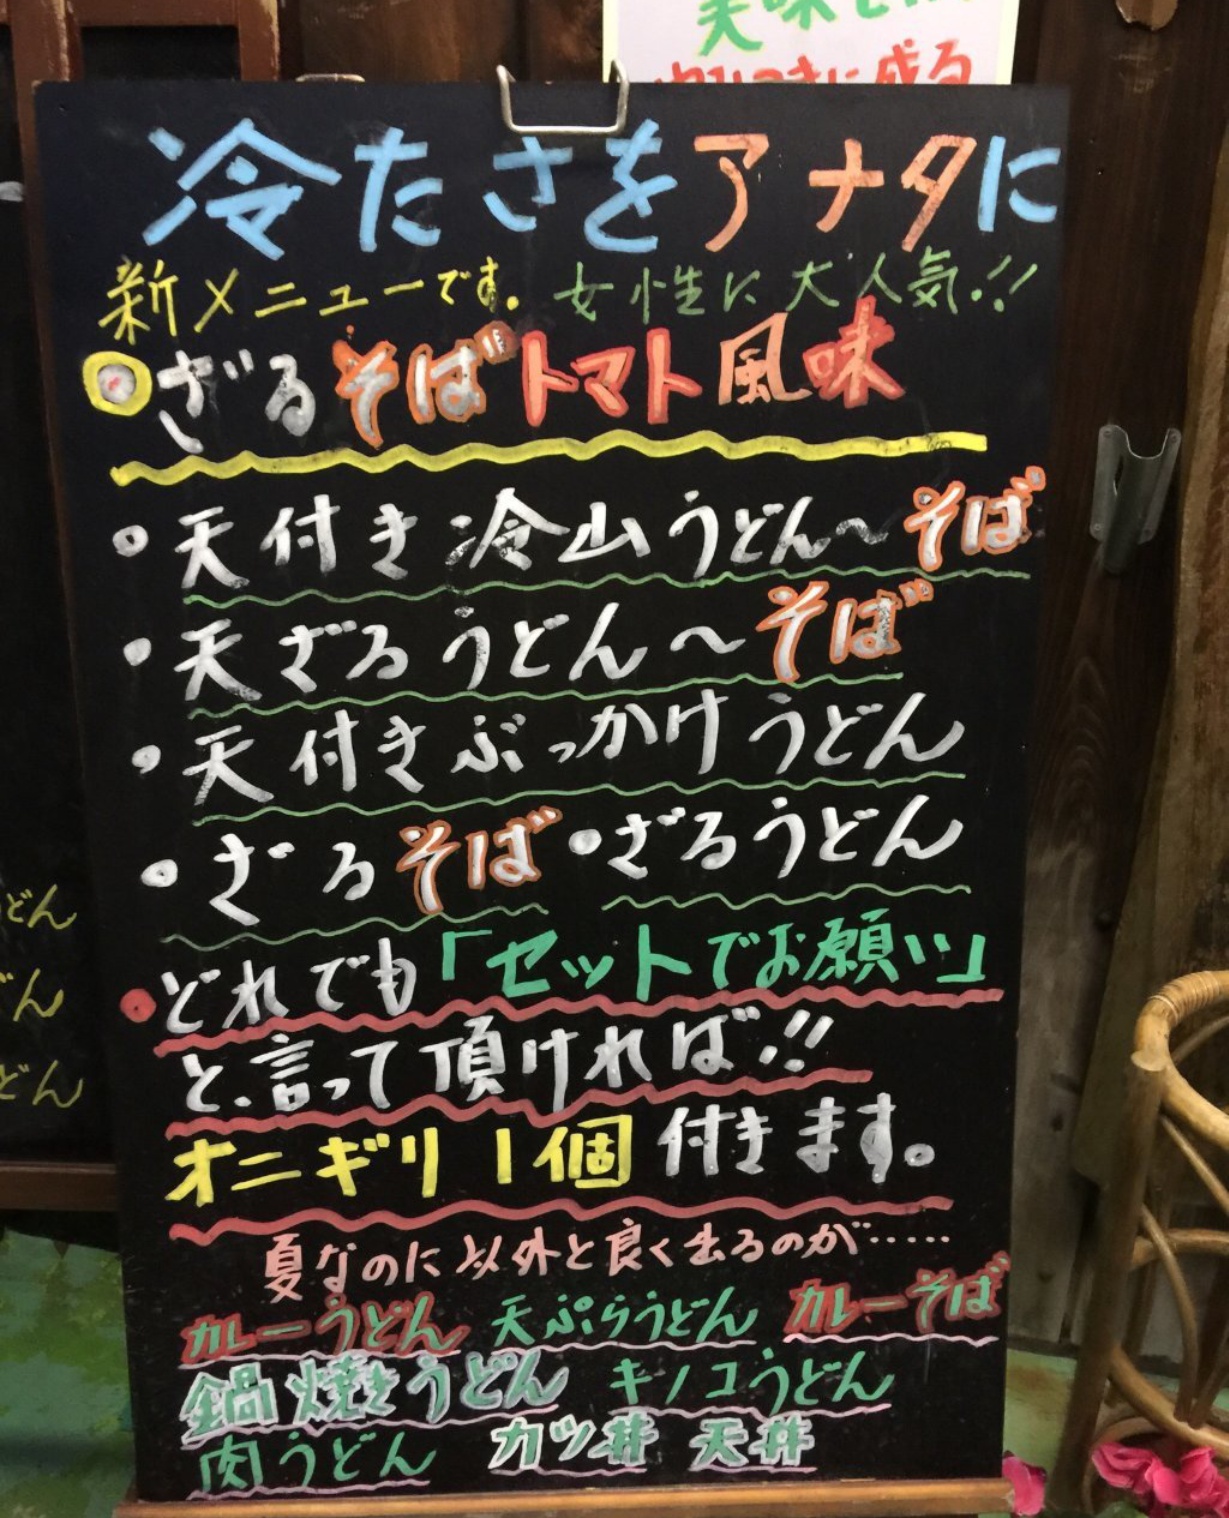 美味
冷たさをアナタに
新メニューです。女性に大人気!!
ざるそばトマト風味
・天付き冷山うどん〜そば
・天ざるうどん〜そば
・天付きぶっかけうどん
・ざるそば・ざるうどん
・どれでも「セットでお願い」
と言って頂ければ!!
オニギリ1個付きます。
夏なのに以外と良く出るのが……
カレーうどん 天ぷらうどん カレーそば
鍋焼きうどん キノコうどん
肉うどん カツ丼 天丼
どん
どん
どん